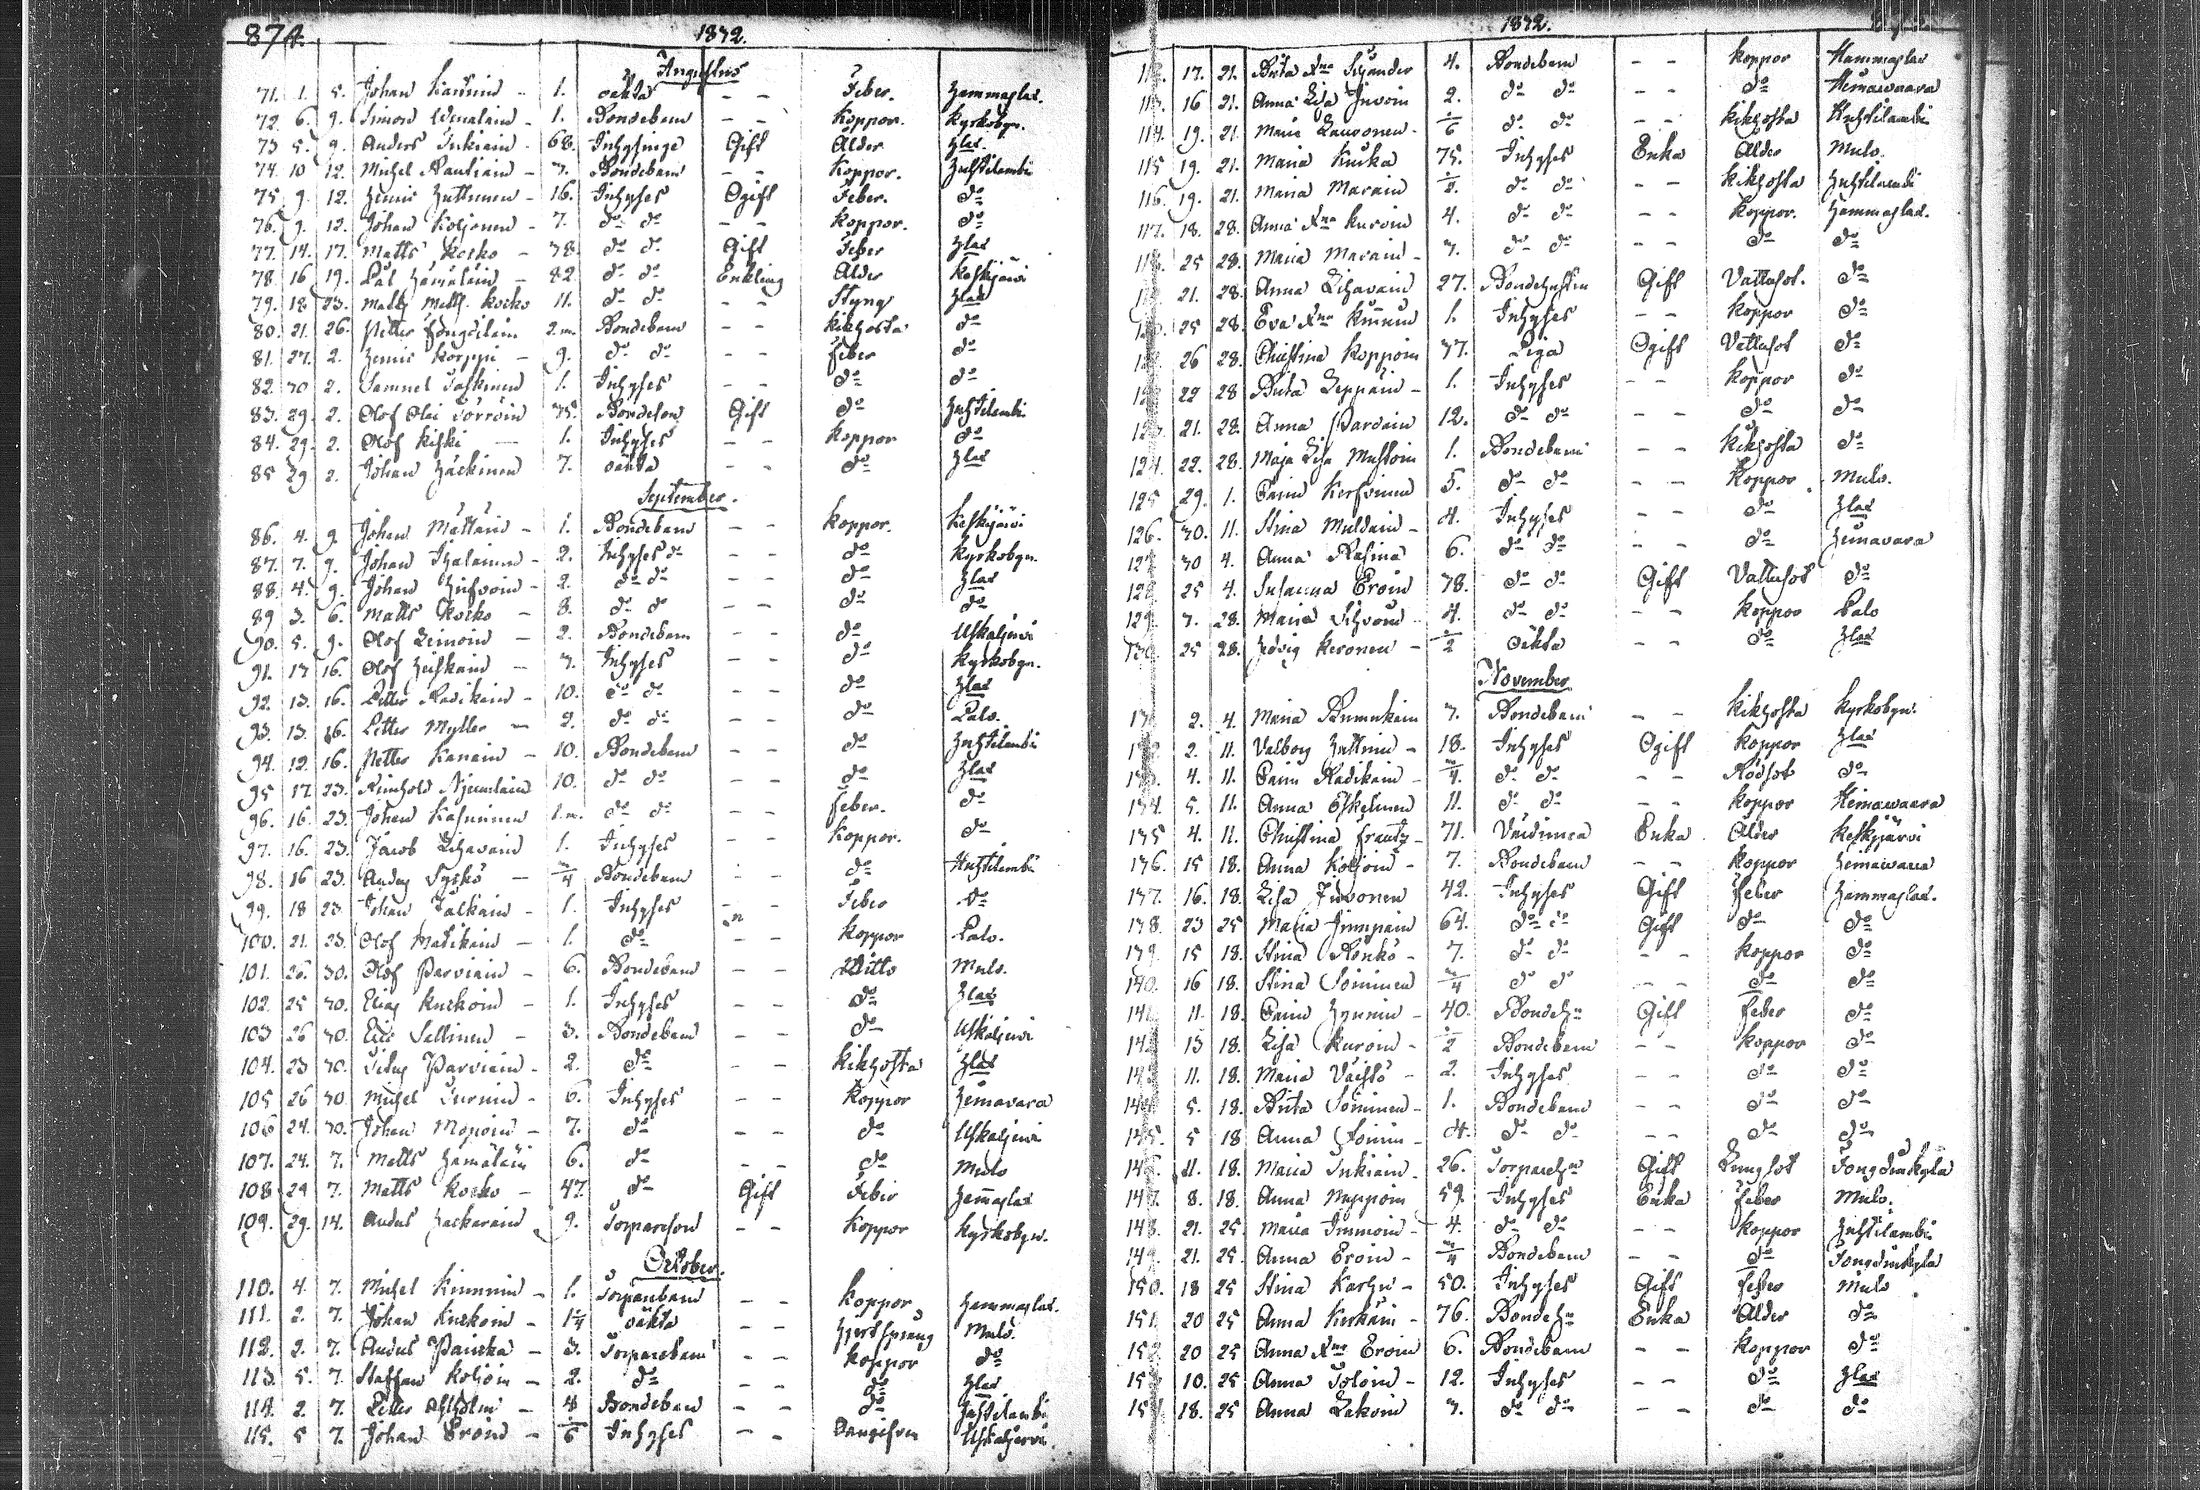 874. 1832.
Augustus
71. 1. 5. Johan - 1. oäkta - - Feber. Hammaslax.
72. 6. 9. Simon - 1. Bondebarn - - Koppor. Kyrkobyn.
73 5. 9. Anders Turkiain - 68. Inhysinge Gift Ålder Hlax.
74. 10 12. Michel Rautiain - 7. Bondebarn - - Koppor. Huhtilambi
75. 9. 12. Henric Huttunen - 16. Inhyses Ogift Feber. do
76. 9. 12. Johan Koljonen - 7. do do - - Koppor. do
77. 14. 17. Matts Kosko - 78. do do Gift Feber Hlax
78. 16 19. Pål Hämäläin - 82 do do Enkling Ålder Keskijärvi
79. 18 23. Matts Matts. Kosko 11. do do - - Styng Hlax
80. 21. 26. Petter 2.m. Bondebarn - - Kikhosta do
81. 27. 2. Henric Korppi - 9. do do - - feber do
82. 30 2. Samuel Taskinen 1. Inhyses - - do do
83. 29. 2. Olof Olai Törröin 75. Bondeson Gift do Huhtilambi
84. 29. 2. Olof Kiski - 1. Inhyses - - Koppor do
85 29 2. Johan Häckinen 7. oäkta - - do Hlax
September.
86. 4. 9. Johan Mättäin - 1. Bondebarn - - Koppor. Keskijärvi
87. 7. 9. Johan Ihalainen - 2. Inhyses do - - do Kyrkobyn.
88. 4. 9. Johan Hirfvoin - 2. do do - - do Hlax
89 3. 6. Matts Kosko - 8. do do - - do do
90. 5. 9. Olof Leinoin - 2. Bondebarn - - do Uskaljervi
91. 13 16. Olof Heiskain - 7. Inhyses - - do Kyrkobyn.
92. 13. 16. Petter Radikain - 10. do do - - do Hlax
93. 13. 16. Petter Myller - 2. do do - - do Palo.
94. 12 16. Petter Kanain - 10. Bondebarn - - do Huhtilambi
95 17. 23. Reinhold 10. do do - - do Hlax
96. 16. 23. Johan Kasurinen 1.m. do do - - feber. do
97. 16. 23. Jacob Lihavain 1. Inhyses - - Koppor. do
98. 16 23. Anders Syrkö - m/4 Bondebarn - - do Huhtilambi
99. 18 23. Johan Jalkain - 1. Inhyses - - Feber do
100. 21. 23. Olof Matikain - 1. do - - Koppor Palo.
101. 26. 30. Olof Parviain - 6. Bondebarn - - Ditto Mulo.
102. 25 30. Elias Kurkoin - 1. Inhyses - - do Hlax
103 26 30. Eric Sallinen - 3. Bondebarn - - do Uskaljervi
104. 23 30. Titus Parviain - 2. do - - Kikhosta Hlax
105 26 30. Michel Turuin - 6. Inhyses - - Koppor Heinavara
106 24. 30. Johan Moxoin - 7. do - - do Uskaljervi
107. 24. 7. Matts Hämäläin 6. do - - do Mulo
108 29 7. Matts Kosko - 47. do Gift Feber Hemaslax
109. 29. 14. Anders Zackarain 9. Torpareson - - Koppor Kyrkobyn.
October.
110. 4. 7. Michel Kinnuin - 1. Torparebarn - - Koppor Hammaslax.
111. 2. 7. Johan Kurkoin - 1¼ oäkta - - Hjertsprång Mulo.
112. 2. 7. Anders Pariska - 3. Torparebarn - - Koppor do
113. 5. 7. Staffan Koljoin - 2. do - - do Hlax
114. 2. 7. Petter - 4 Bondebarn - - do Huhtilambi
115. 5 7. Johan Eroin - 6 Inhyses - - Uskaljervi.
1832.
17. 21. Brita Xna Siljander 4. Bondebarn - - Koppor Hammaslax
16 21. Anna Lisa Juvoin 2. do do - - do Heinäwaara
114. 19. 21. Maria Lauronen - 6 do do - - Kikhosta Huhtilambi
115 19. 21. Maria Kiiska 75. Inhyses Enka Ålder Mulo.
116. 19. 21. Maria Marain 2. do do - - Kikhosta Huhtilambi
117. 18. 28. Anna Xna Kuroin 4. do do - - Koppor. Hammaslax.
25 28. Maria Marain - 7. do do - - do do
21. 28. Anna Lihavain 27. Bondehustru Gift Vattusot. do
25 28. Eva Xna Kinnun 1. Inhyses - - Koppor do
26 28. Christina Koppoin 37. Piga Ogift Vattusot do
22 28 Brita Leppäin - 1. Inhyses - - Koppor do
21. 28. Anna Pardain 12. do do - - do do
124. 22. 28. Maja Lisa Mustoin 1. Bondebarn - - Kikhosta do
125 29. 1. Carin Kerfvinen 5. do do - - Koppor. Mulo.
126. 30. 11. Stina Muldain - 4. Inhyses - - do Hlax
30 4. Anna Rasina 6. do do - - do Heinavara
25 4. Susanna Eroin 78. do do Gift Vattusot do
129. 7. 28. Maria Silvoin 4. do do - - Koppor Palo
25 28. Hedvig Keronen - 2 Oäkta - - do Hlax
November
2. 4. Maria Bruunikain 7. Bondebarn - - Kikhosta Kyrkobyn.
2. 11. Valborg Huttuin - 18. Inhyses Ogift Koppor Hlax
4. 11. Carin Radikain - m/4. do do - - Rödsot do
134. 5. 11. Anna Eskelinen 11. do do - - Koppor Heinawaara
135 4. 11. Christina Frantz - 71. Enka Ålder Keskijärvi
136. 15 18. Anna Koljoin - 7. Bondebarn - - Koppor Heinäwaara
137. 16. 18. Lisa Juvonen 42. Inhyses Gift Feber Hammaslax.
138. 23 25 Maria Jumpain 64. do do Gift do do
139. 15 18. Stina Rönkö - 7. do do - - Koppor do
140. 16 18. Stina Soininen m/4 do do - - do do
141 11. 18. Carin Hynnin - 40. Bondehu Gift feber do
13 18. Lisa Kuroin - 2 Bondebarn - - Koppor do
11. 18. Maria Väistö - 2. Inhyses - - do do
144. 5. 18. Brita Soininen - 1. Bondebarn - - do do
145. 5 18 Anna Soinin - 4. do do - - do do
146 11. 18. Maria Turkiain - 26. Torparehu Gift Lungsot
147. 8. 18. Anna Nuppoin 59. Inhyses Enka feber Mulo.
148. 21. 25. Maria Immoin - 4. do do - - Koppor Huhtilambi
149. 21. 25. Anna Eroin - m/4 Bondebarn - - do
150. 18 25 Stina Karhu - 50. Inhyses Gift feber Mulo
151. 20 25 Anna Kerkäin - 76. Bondehu Enka Ålder do
152 20 25 Anna Xna Eroin 6. Bondebarn - - Koppor do
10. 25 Anna Toloin - 12. Inhyses - - do Hlax
18. 25 Anna Lakoin 7. do do - - do do